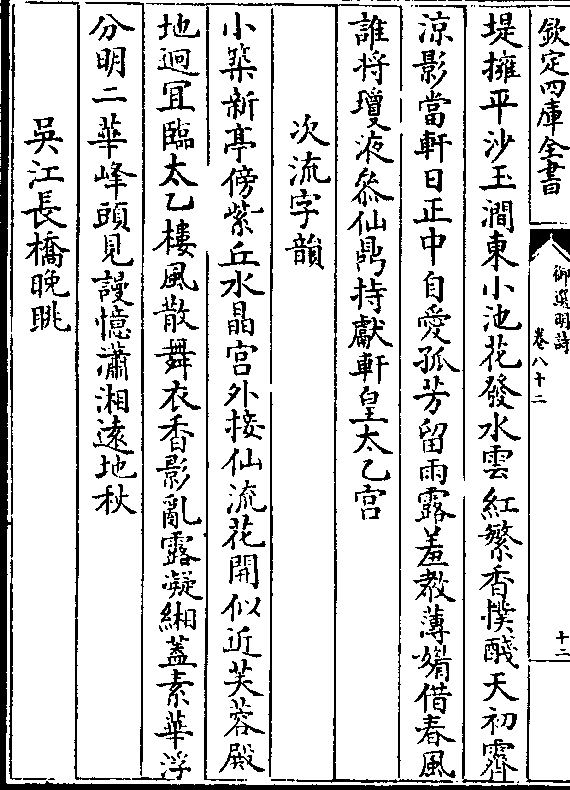 欽定四庫全書
御選明詩
卷八十二
十二
堤擁平沙玉澗東小池花發水雲紅繁香撲醆天初霽
涼影當軒日正中自愛孤芳留雨露羞教薄媚借春風
誰將瓊液叅仙鼎持獻軒皇太乙宮
次流字韻
小築新亭傍紫丘水晶宮外接仙流花開似近芙蓉殿
地迥冝臨太乙樓風散舞衣香影亂露凝緗蓋素華浮
分明二華峰頭見謾憶瀟湘遠地秋
吳江長橋晚眺